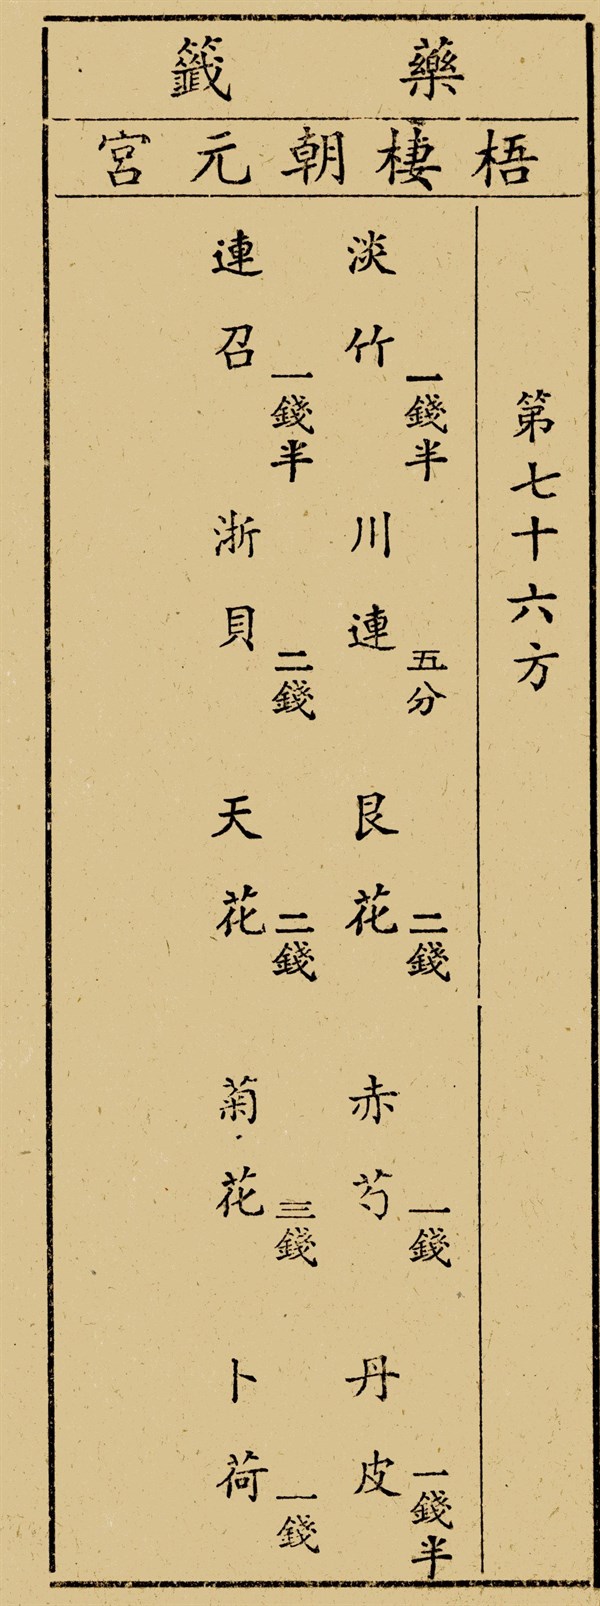 藥籤
梧棲朝元宮
第七十六方
淡竹一錢半 川連五分 艮花二錢 赤芍一錢 丹皮一錢半
連召一錢半 浙貝二錢 天花二錢 菊花三錢 卜荷一錢